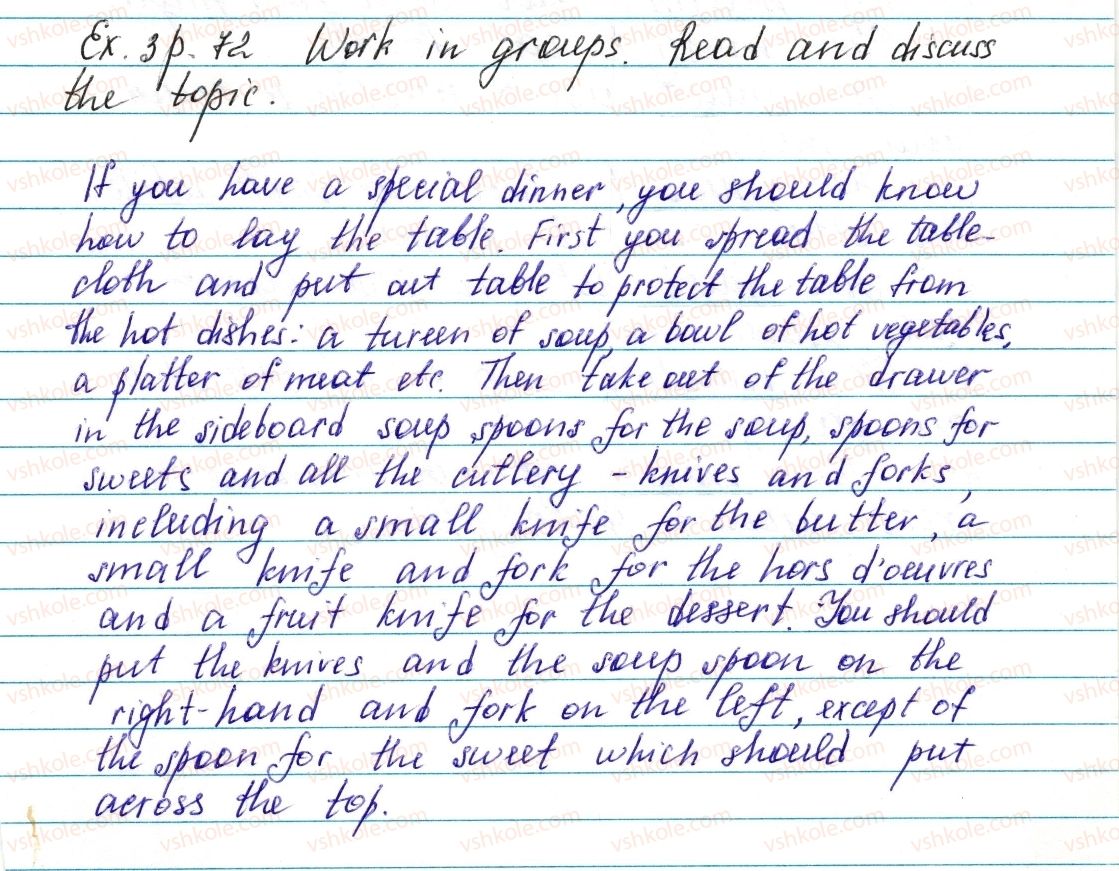 Ex. 3 p. 72 Work in groups. Read and discuss
the topic.
If you have a special dinner, you should know
how to lay the table. First you spread the table-
cloth and put out table to protect the table from
the hot dishes: a tureen of soup, a bowl of hot vegetables,
a platter of meat etc. Then take out of the drawer
in the sideboard soup spoons for the soup, spoons for
sweets and all the cutlery - knives and forks,
including a small knife for the butter, a
small knife and fork for the hors d'oeuvres
and a fruit knife for the dessert. You should
put the knives and the soup spoon on the
right-hand and fork on the left, except of
the spoon for the sweet which should put
across the top.
vshkole.com